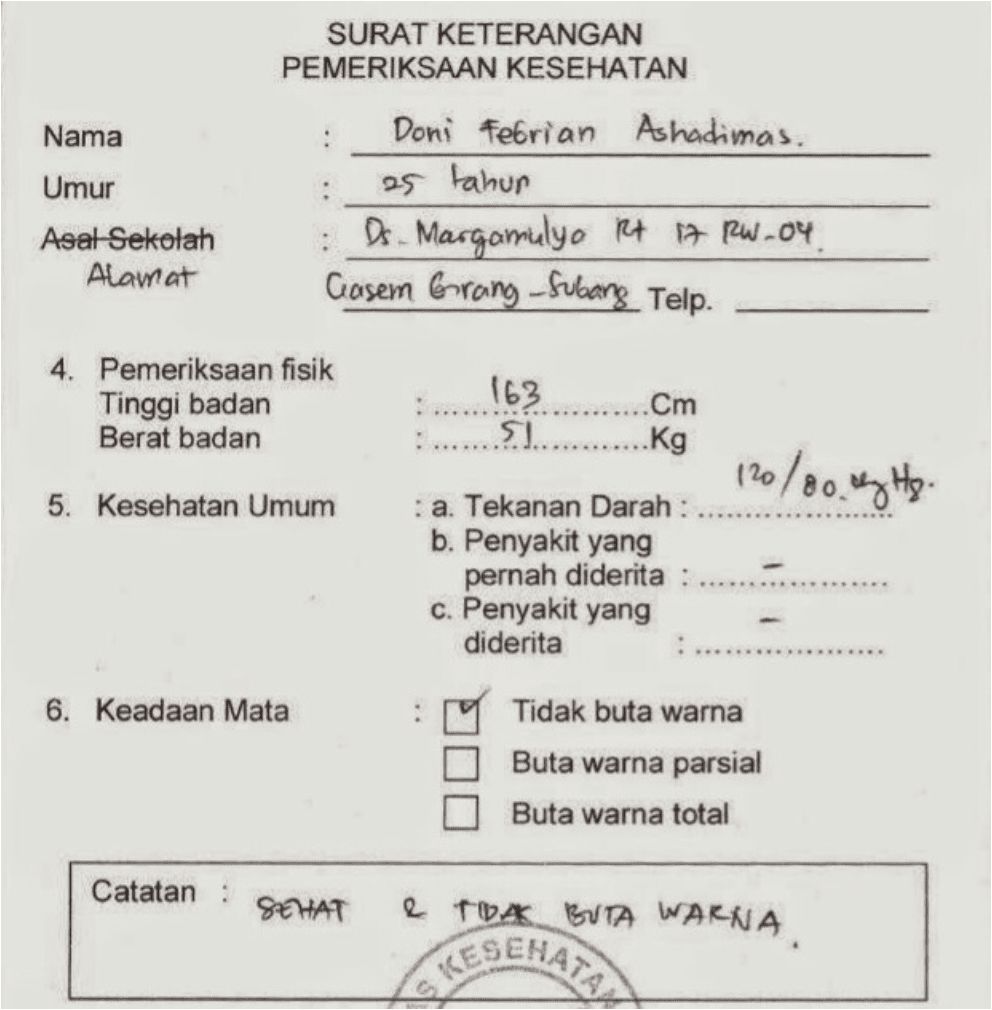 SURAT KETERANGAN
PEMERIKSAAN KESEHATAN
Nama : Doni Febrian Ashadimas.
Umur : 25 tahun
Asal Sekolah : Ds. Margamulyo Rt 17 RW-04.
Alamat
Telp.
4. Pemeriksaan fisik
Tinggi badan : 163 Cm
Berat badan : 51 Kg
5. Kesehatan Umum : a. Tekanan Darah : 120/80. mgHg.
b. Penyakit yang
pernah diderita : -
c. Penyakit yang
diderita : -
6. Keadaan Mata : Tidak buta warna
Buta warna parsial
Buta warna total
Catatan : SEHAT & TIDAK BUTA WARNA.
KESEHATAN